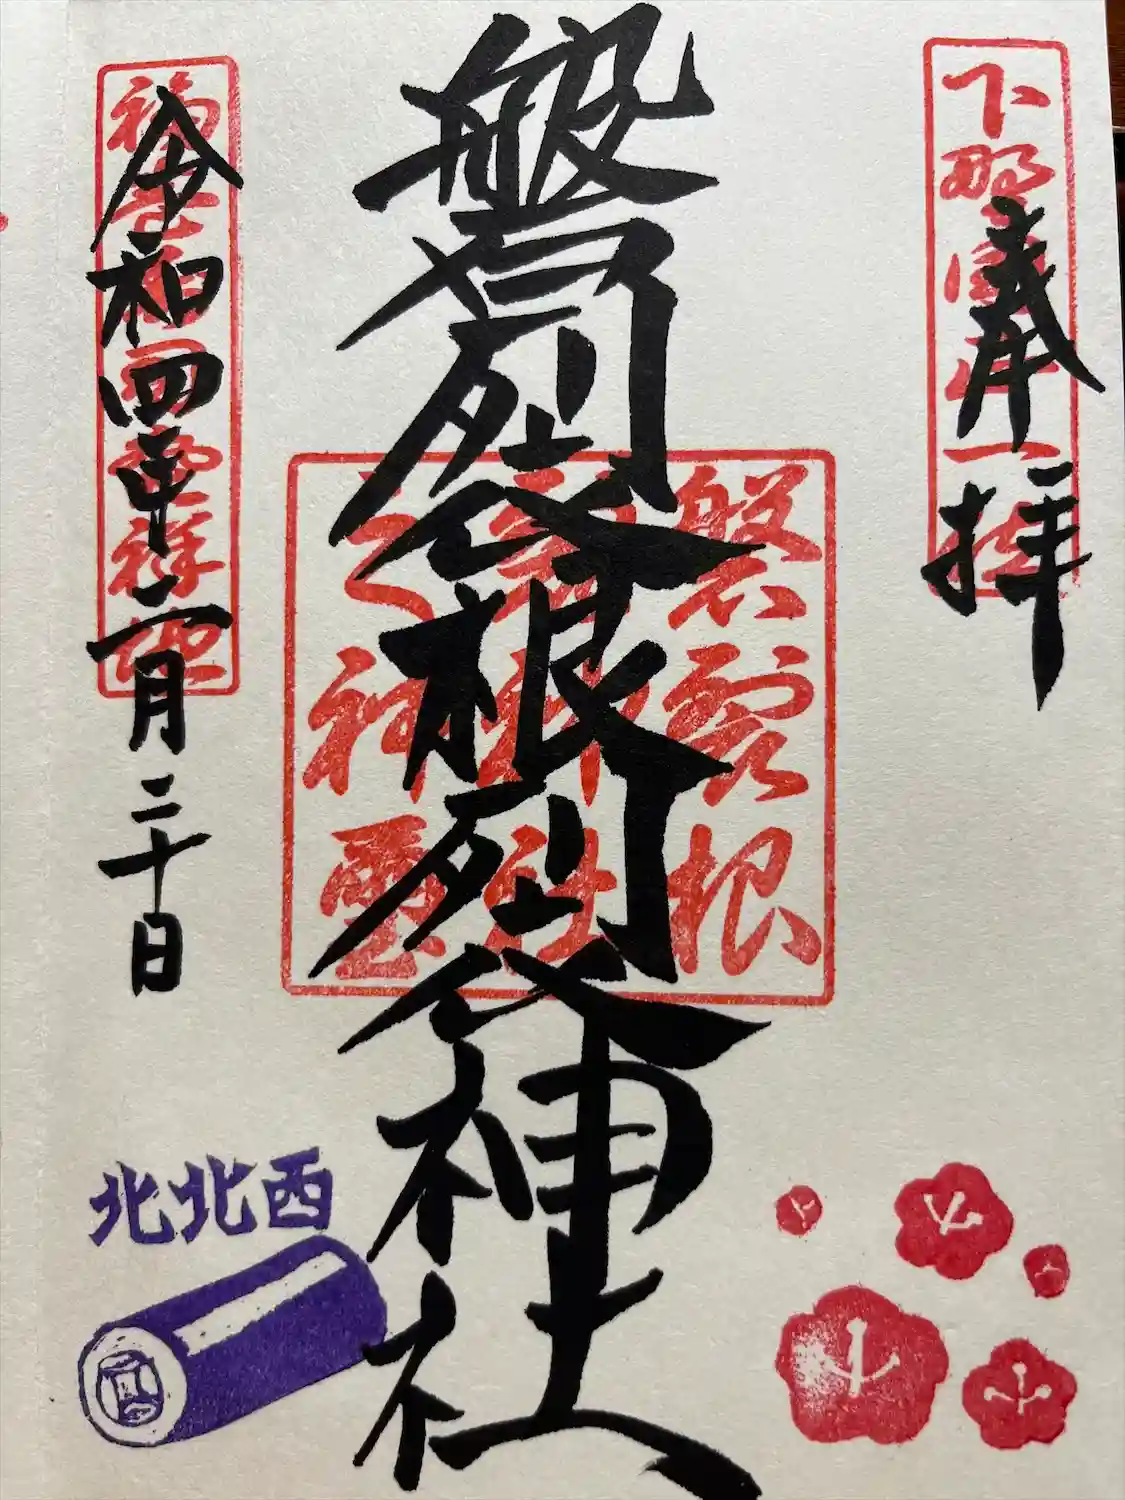 奉拝
磐裂根裂神社
磐裂根
裂神社
之神璽
令和四年二月二十日
北北西